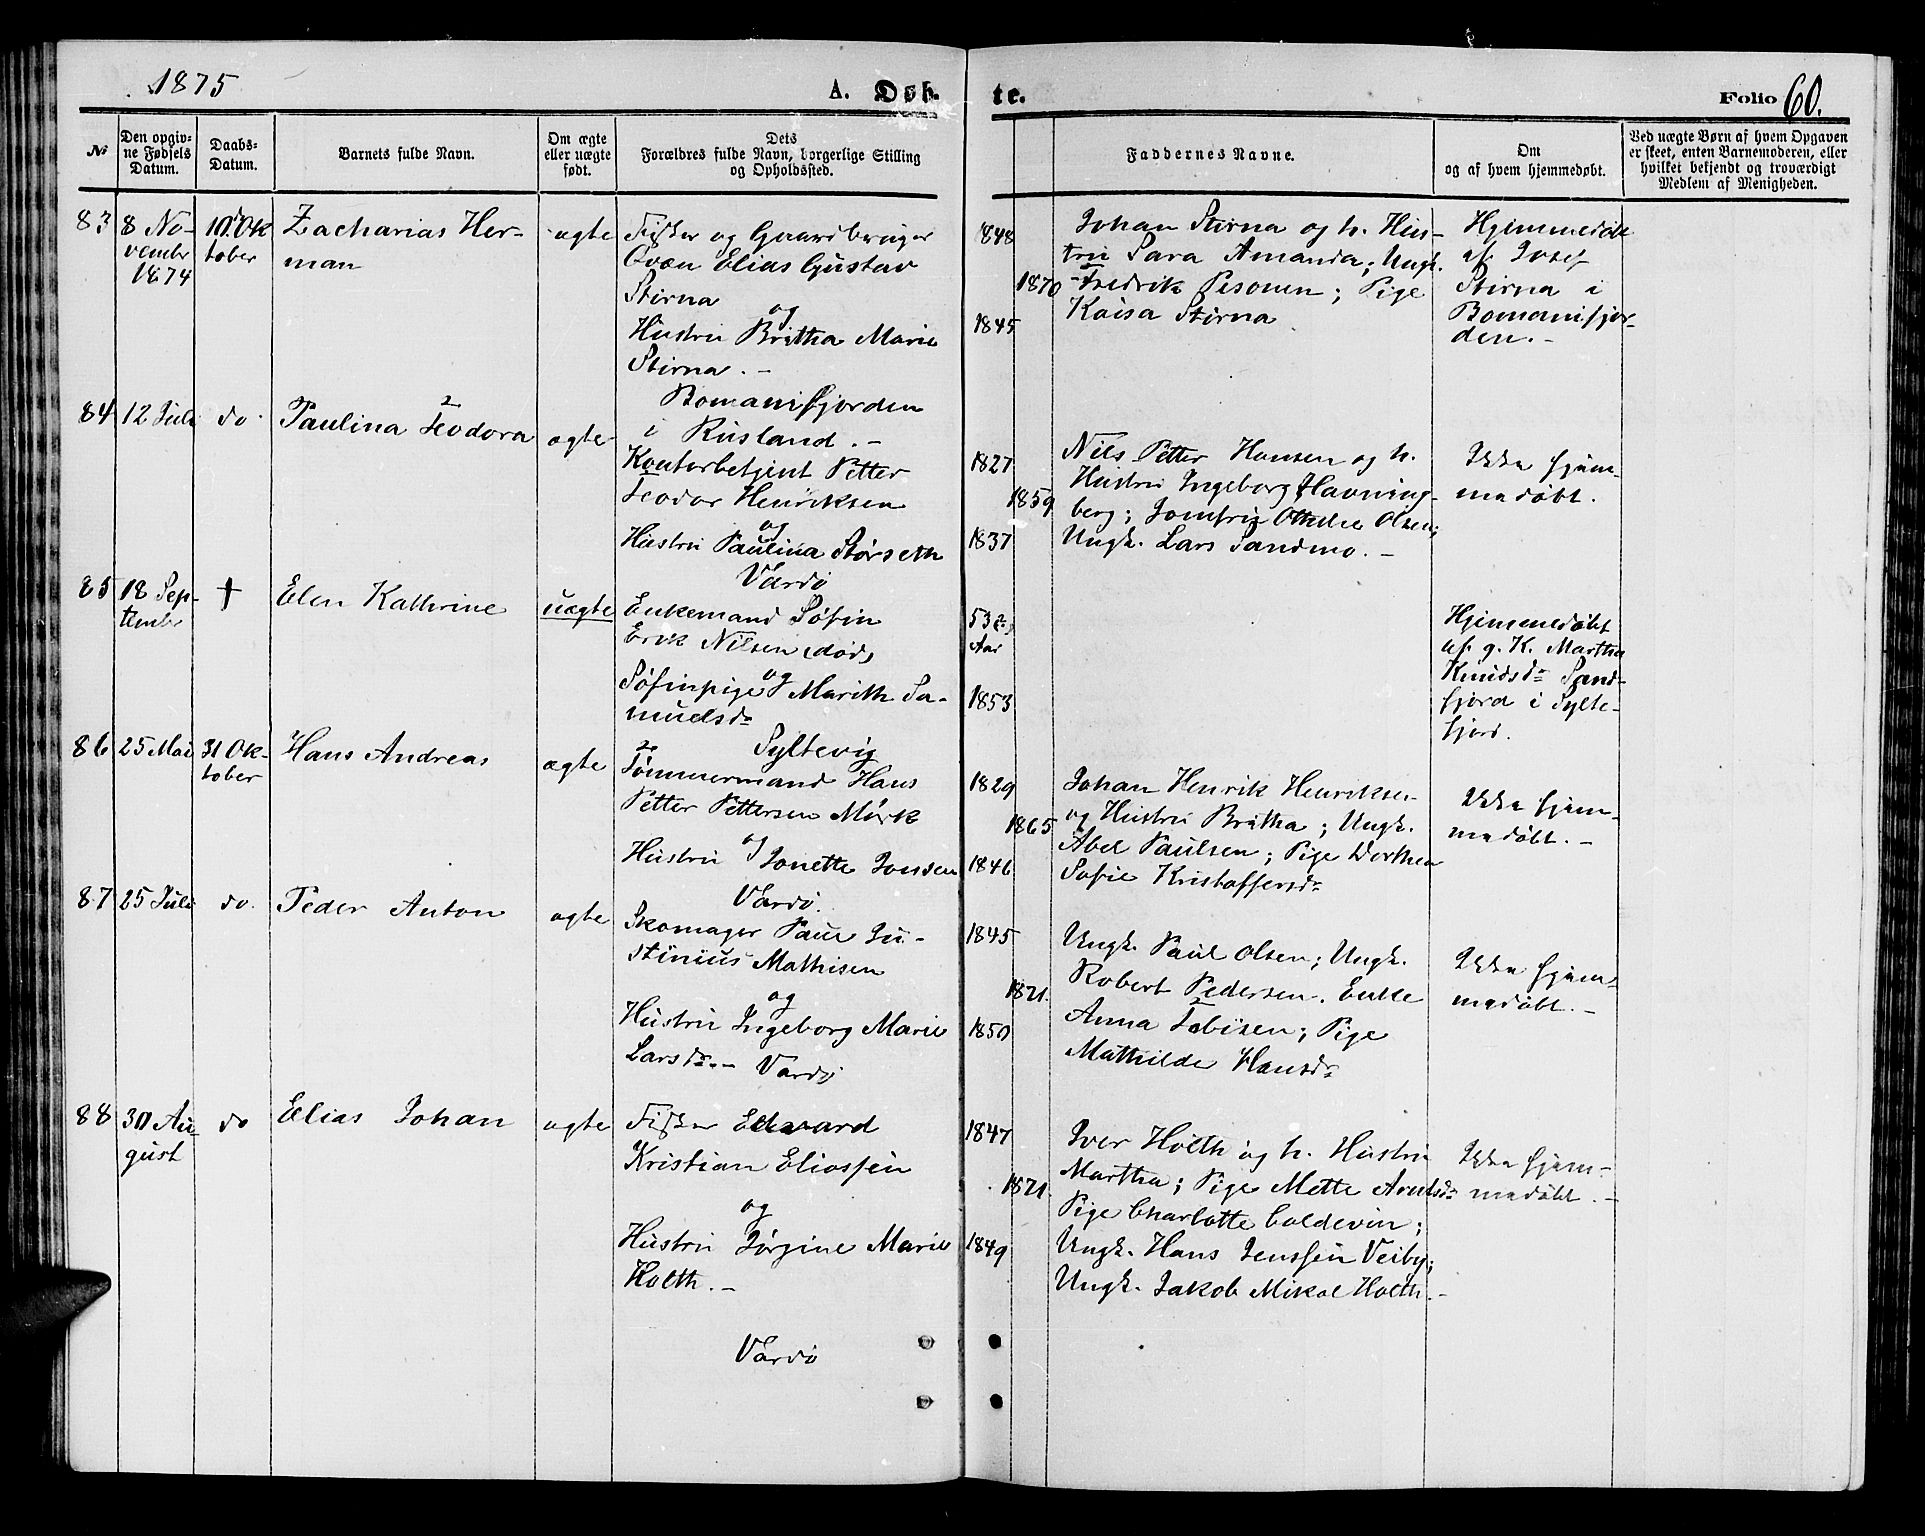 1875
A. Døb-
te.
Folio 60.
№
Den opgiv-
ne Fødsels
Datum.
Daabs-
Datum.
Barnets fulde Navn.
Om ægte
eller uægte
født.
Dets
Forældres fulde Navn, borgerlige Stilling
og Opholdssted.
Faddernes Navne.
Om
og af hvem hjemmedøbt.
Ved uægte Børn af hvem Opgaven
er skeet, enten Barnemoderen, eller
hvilket bekjendt og troværdigt
Medlem af Menigheden.
83
8 No-
vembr
1874
10 Ok
tober
Zacharias Her-
man
ægte
Fisker og Gaardbruger
Qvæn Elias Gustav
Stirna
og
Hustru Britha Marie
Stirna. -
Bomanifjorden
i Rusland. -
1848
1870
1845
Johan Stirna og h. Hus-
tru Sara Amanda; Ungk.
Fredrik Pesonen; Pige
Kaisa Stirna
Hjemmedøbt
af Josef
Stirna i
Bomanifjor-
den. -
84
12 Juli
do.
Paulina Teodora
ægte
Kontorbetjent Petter
Teodor Henriksen
og
Hustru Paulina Størseth
Vardø
1827
1859
1837
Nils Petter Hansen og h.
Hustru Ingeborg Havning-
berg; Jomfru Olsen;
Ungk. Lars Sandmo. -
Ikke hjem-
medøbt.
85
18 Sep-
tember
†
Elen Kathrine
uægte
Enkemand Søfin
Erik Nilsen (død)
og
Søfinpige Marith Sa-
muelsdr
Syltevig
53
Aar
1853
Hjemmedøbt
af g. K. Martha
Knudsdr Sand-
fjord i Sylte-
fjord.
86
25 Mai
31 Ok-
tober
Hans Andreas
ægte
Tømmermand Hans
Petter Pettersen Mörk
og
Hustru Jonette Jonsen
Vardø.
1829
1865
1846
Johan Henrik Henriksen
og Hustru Britha; Ungk.
Abel Paulsen; Pige Dorthea
Sofie Kristoffersdr
Ikke hjem-
medøbt. -
87
25 Juli
do.
Peder Anton
ægte
Skomager Paul Ju-
stinius Mathisen
og
Hustru Ingeborg Marie
Larsdr. - Vardø
1845
1871.
1850
Ungk. Paul Olsen; Ungk.
Robert Pedersen. Enke
Anna Tobisen; Pige
Mathilde Hansdr
Ikke hjem-
medøbt. -
88
30 Au-
gust
do
Elias Johan
ægte
Fisker Edvard
Kristian Eliassen
og
Hustru Jørgine Marie
Holth. -
Vardø
1847
1871.
1849
Iver Holth og h. Hustru
Martha; Pige Mette Arntsdr
Pige Charlotte Coldevin;
Ungk. Hans Jenssen Veiby;
Ungk. Jakob Mikal Holth. -
Ikke hjem-
medøbt. -